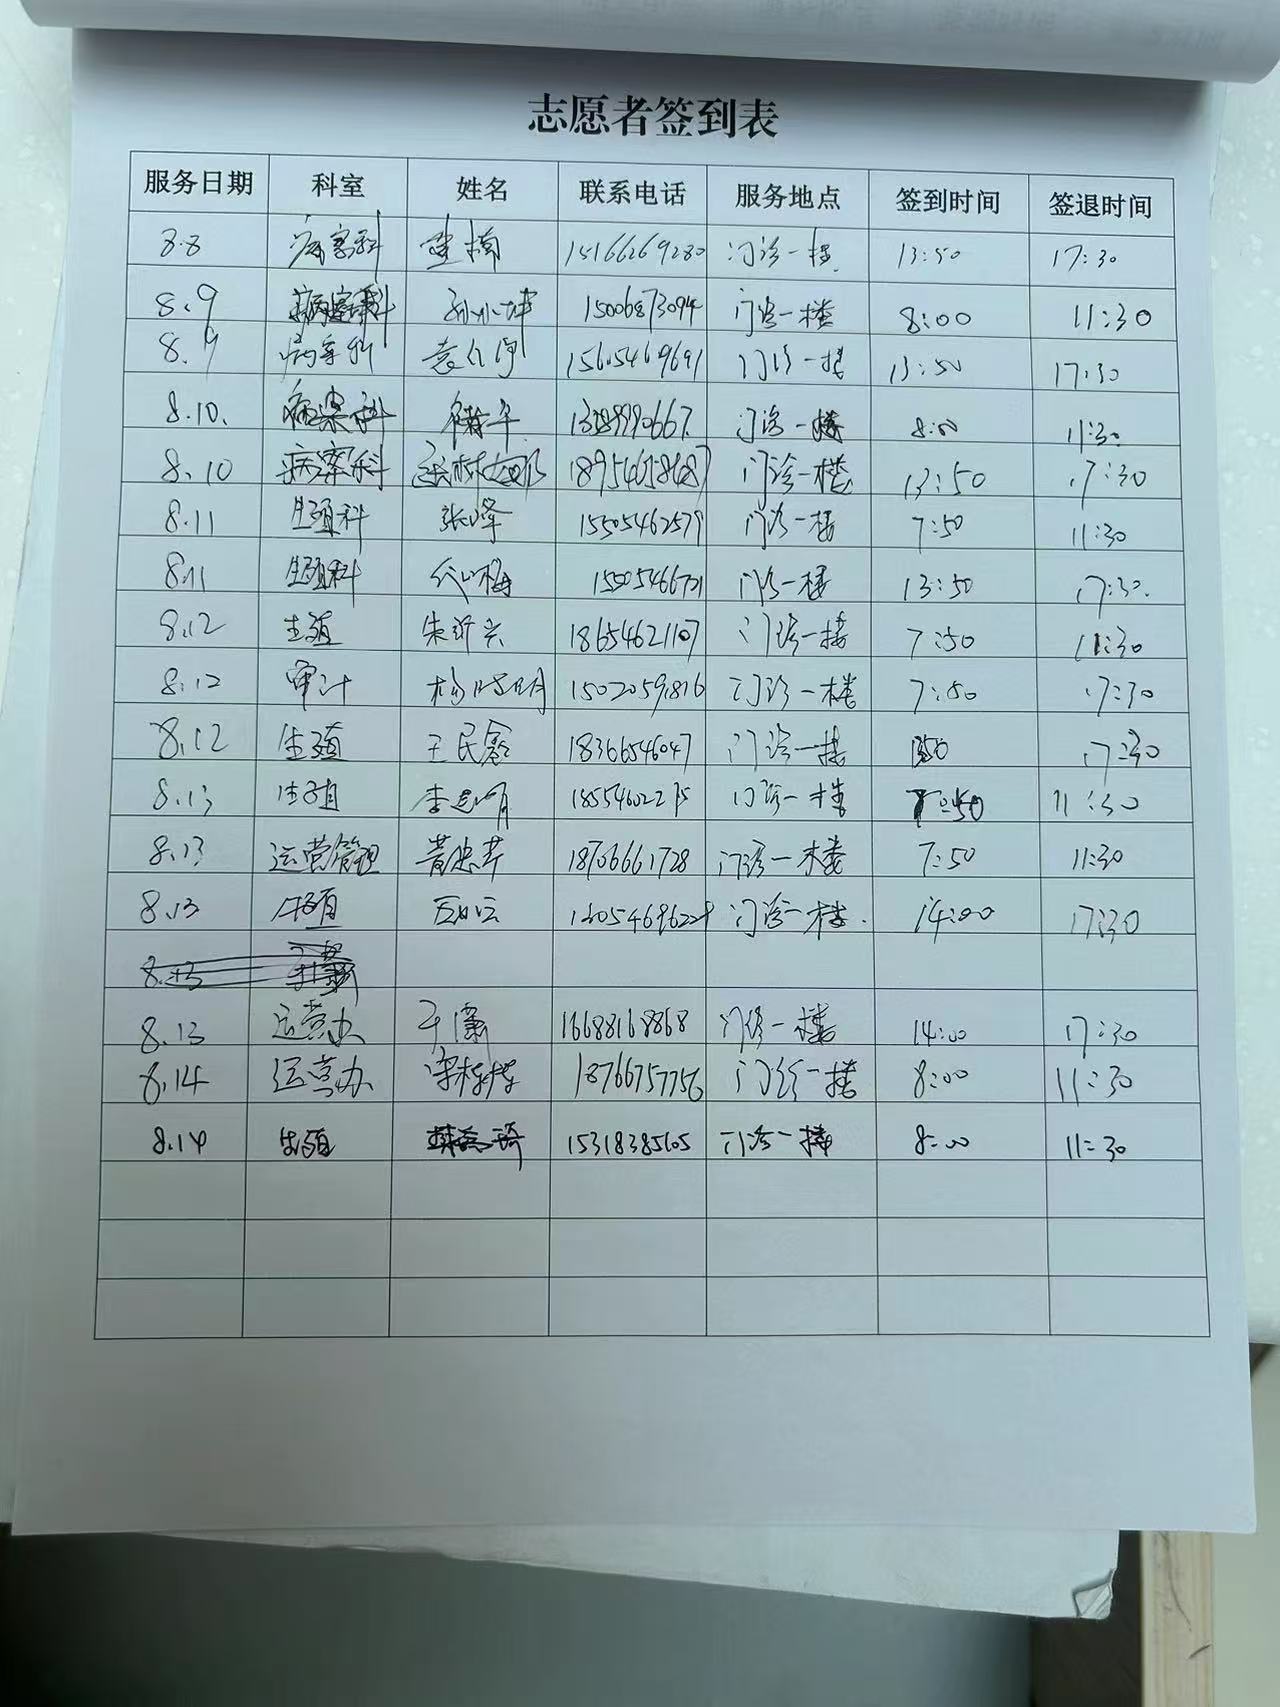 志愿者签到表
服务日期 科室 姓名 联系电话 服务地点 签到时间 签退时间
8.8 病案科 楠 15166269280 门诊一楼 13:50 17:30
8.9 病案科 孙小坤 15006873094 门诊一楼 8:00 11:30
8.9 病案科 15605469691 门诊一楼 13:50 17:30
8.10. 病案科 门诊一楼 8:00 11:30
8.10 病案科 18954658687 门诊一楼 13:50 17:30
8.11 生殖科 张峰 15505462579 门诊一楼 7:50 11:30
8.11 生殖科 梅 门诊一楼 13:50 17:30.
8.12 生殖 朱沂兴 18654621107 门诊一楼 7:50 11:30
8.12 审计 杨晓明 15020591816 门诊一楼 7:50 17:30
8.12 生殖 王民鑫 18366546047 门诊一楼 17:30
8.13 生殖 李 门诊一楼 7:50 11:30
8.13 运营管理 黄忠芹 18706661728 门诊一楼 7:50 11:30
8.13 生殖 门诊一楼. 14:00 17:30
8.13
8.13 运营办 于潇 16688168868 门诊一楼 14:00 17:30
8.14 运营办 18766757756 门诊一楼 8:00 11:30
8.14 生殖 15318385605 门诊一楼 8:00 11:30